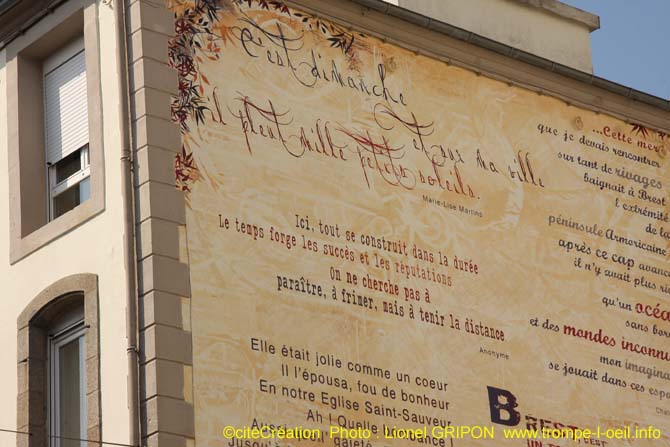 C'est dimanche
il pleut mille petits soleils
et sur ma ville
Marie-Lise Martins
Ici, tout se construit dans la durée
Le temps forge les succès et les réputations
On ne cherche pas à
paraître, à frimer, mais à tenir la distance
Anonyme
Elle était jolie comme un coeur
Il l'épousa, fou de bonheur
En notre Eglise Saint-Sauveur
...Cette mer
que je devais rencontrer
sur tant de rivages
baignait à Brest
l'extrémité
de la
péninsule Armoricaine
après ce cap avanc
il n'y avait plus ri
qu'un océa
sans bor
et des mondes inconnu
mon imagina
se jouait dans ces espa
©citéCréation Photo : Lionel GRIPON www.trompe-l-oeil.info